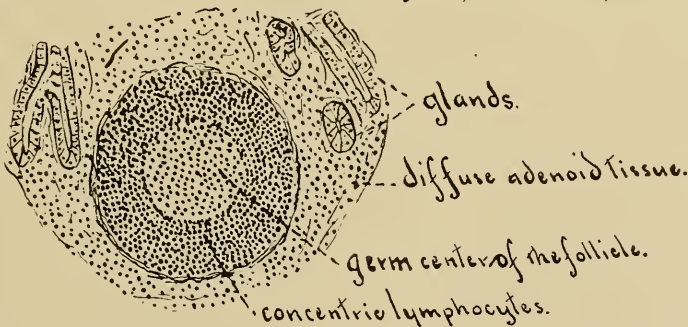 glands.
diffuse adenoid tissue.
germ center of the follicle.
concentric lymphocytes.